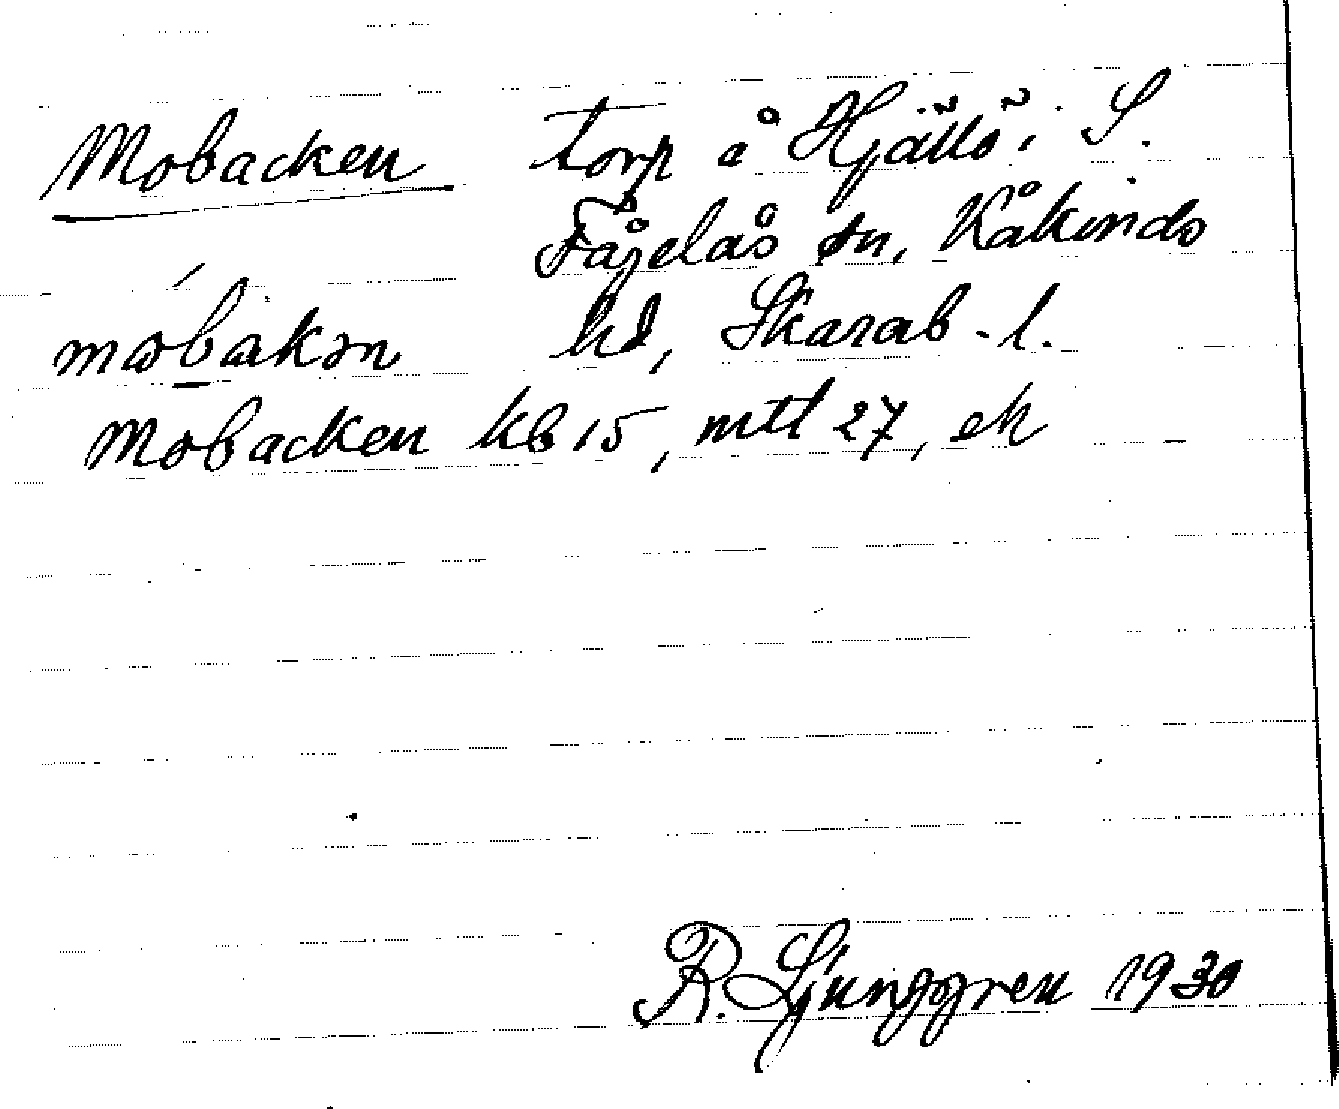 Mobacken torp å Hjällö i S.
Fågelås sn, Kåkinds
mobakən hd, Skarab. l.
Mobacken kb 15, mtl 27, ek
R. Ljunggren 1930